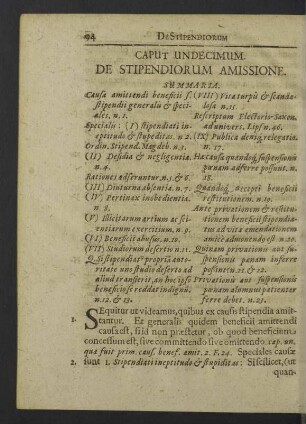 94 DE STIPENDIORUM
CAPUT UNDECIMUM.
DE STIPENDIORUM AMISSIONE.
SUMMARIA.
Causa amittendi beneficii s.
stipendii generalis & speci-
alis, n. 1.
Specialis: (I) stipendiati in-
eptitudo & stupiditas. n. 2.
Ordin. Stipend. Magdeb. n. 3.
(II) Desidia & negligentia.
n. 4.
Rationes adferuntur, n. 5. & 6.
(III) Diuturna absentia. n. 7.
(IV) Pertinax inobedientia.
n. 8.
(V) Illicitarum artium ac sci-
entiarum exercitium. n. 9.
(VI) Beneficii abusus. n. 10.
(VII) Studiorum desertio n. 11.
Q. Si stipendiat⁹ propriâ auto-
ritate uno studio deserto ad
aliud transferit, an hoc ipso
beneficio se reddat indignũ.
n. 12. & 13.
(VIII) Vita turpis & scanda-
losa n. 15.
Rescriptum Electorio-Saxon.
ad univers. Lips. n. 46.
(IX) Publica deniq; relegatio.
n. 17.
Hæ causæ quandoq; suspensionis
pœnam adferre possunt, n.
18.
Quandoq; accepti beneficii
restitutionem. n. 19.
Ante privationem & restitu-
tionem beneficii stipendia-
tum ad vitæ emendationem
amicè admonendũ est n. 20.
Quinam privationis aut su-
spensionis pœnam inferre
possint, n. 21. & 22.
Privationis aut suspensionis
pœnam alumni patienter
ferre debet. n. 23.
SEquitur ut videamus, quibus ex causis stipendia amit-
1. tantur. Et generalis quidem beneficii amittendi
causa est, si id non præstetur, ob quod beneficium
concessum est, sive committendo sive omittendo. cap. un.
qua fuit prim. caus. benef. amit. 2. F. 24. Speciales causæ
2. sunt 1. Stipendiati ineptitudo & stupiditas: Si scilicet, (ut
quan-